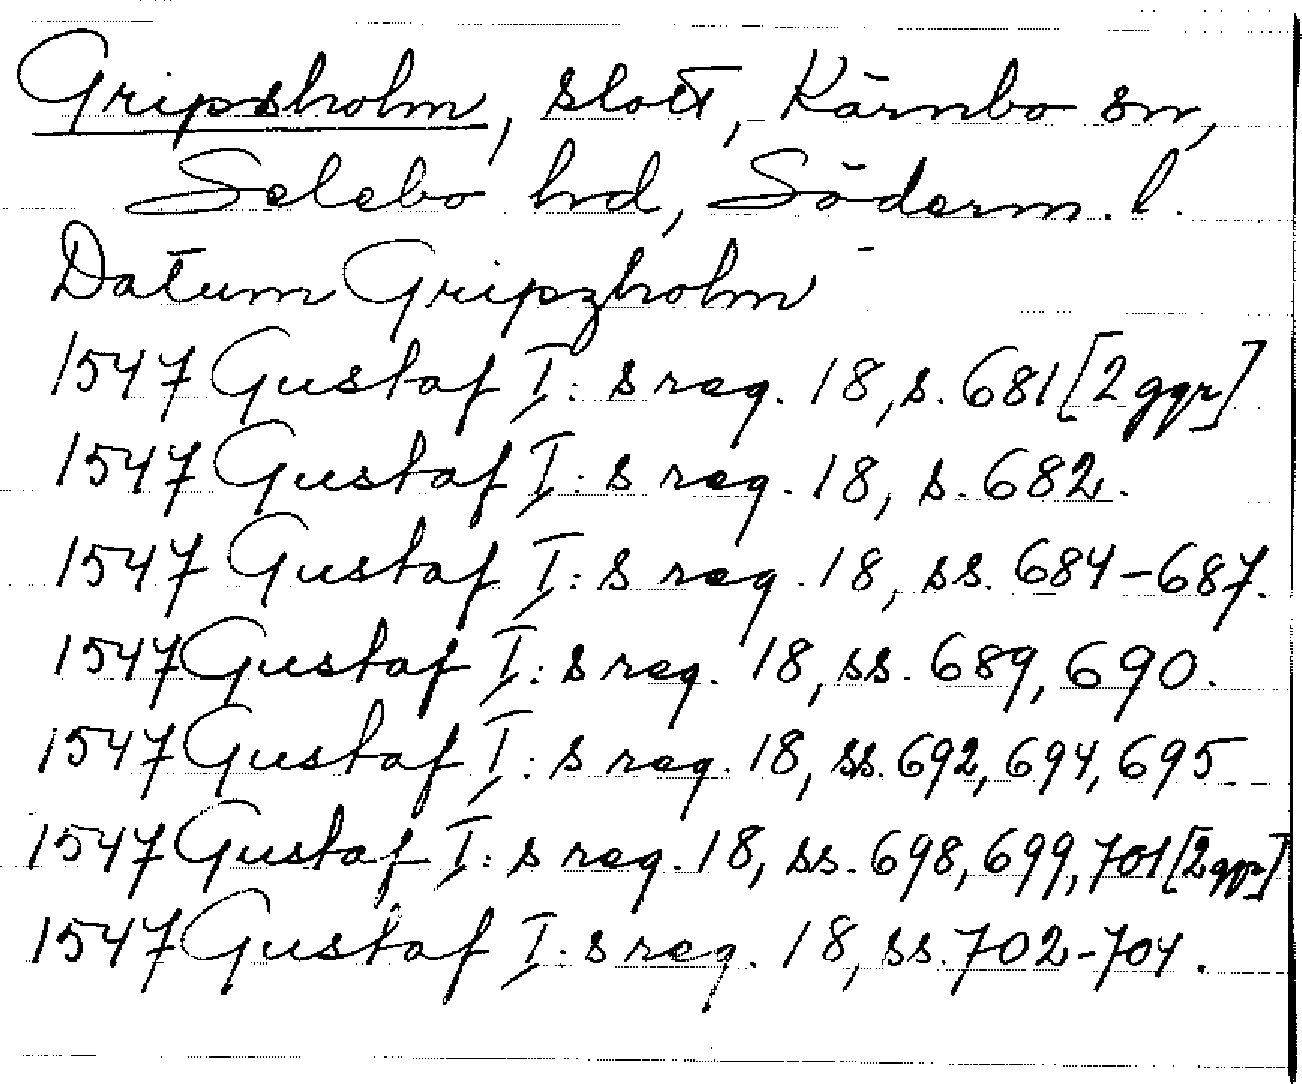 Gripsholm, slott, Kärnbo sn,
Selebo hd, Söderm. l.
Datum Gripzholm
1547 Gustaf I:s reg. 18, s. 681 [2 ggr]
1547 Gustaf I:s reg. 18, s. 682.
1547 Gustaf I:s reg. 18, ss. 684-687.
1547 Gustaf I:s reg. 18, ss. 689, 690.
1547 Gustaf I:s reg. 18, ss. 692, 694, 695
1547 Gustaf I:s reg. 18, ss. 698, 699, 701 [2 ggr]
1547 Gustaf I:s reg. 18, ss. 702-704.